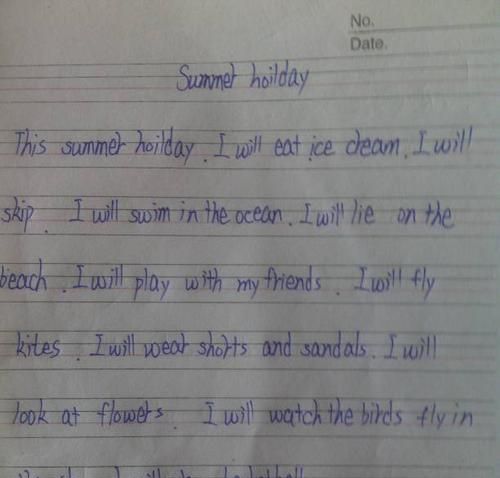 No.
Date.
Summer hoilday
This summer hoilday. I will eat ice cleam. I will
skip. I will swim in the ocean. I will lie on the
beach. I will play with my friends. I will fly
kites. I will wear shorts and sandals. I will
look at flowers. I will watch the birds fly in